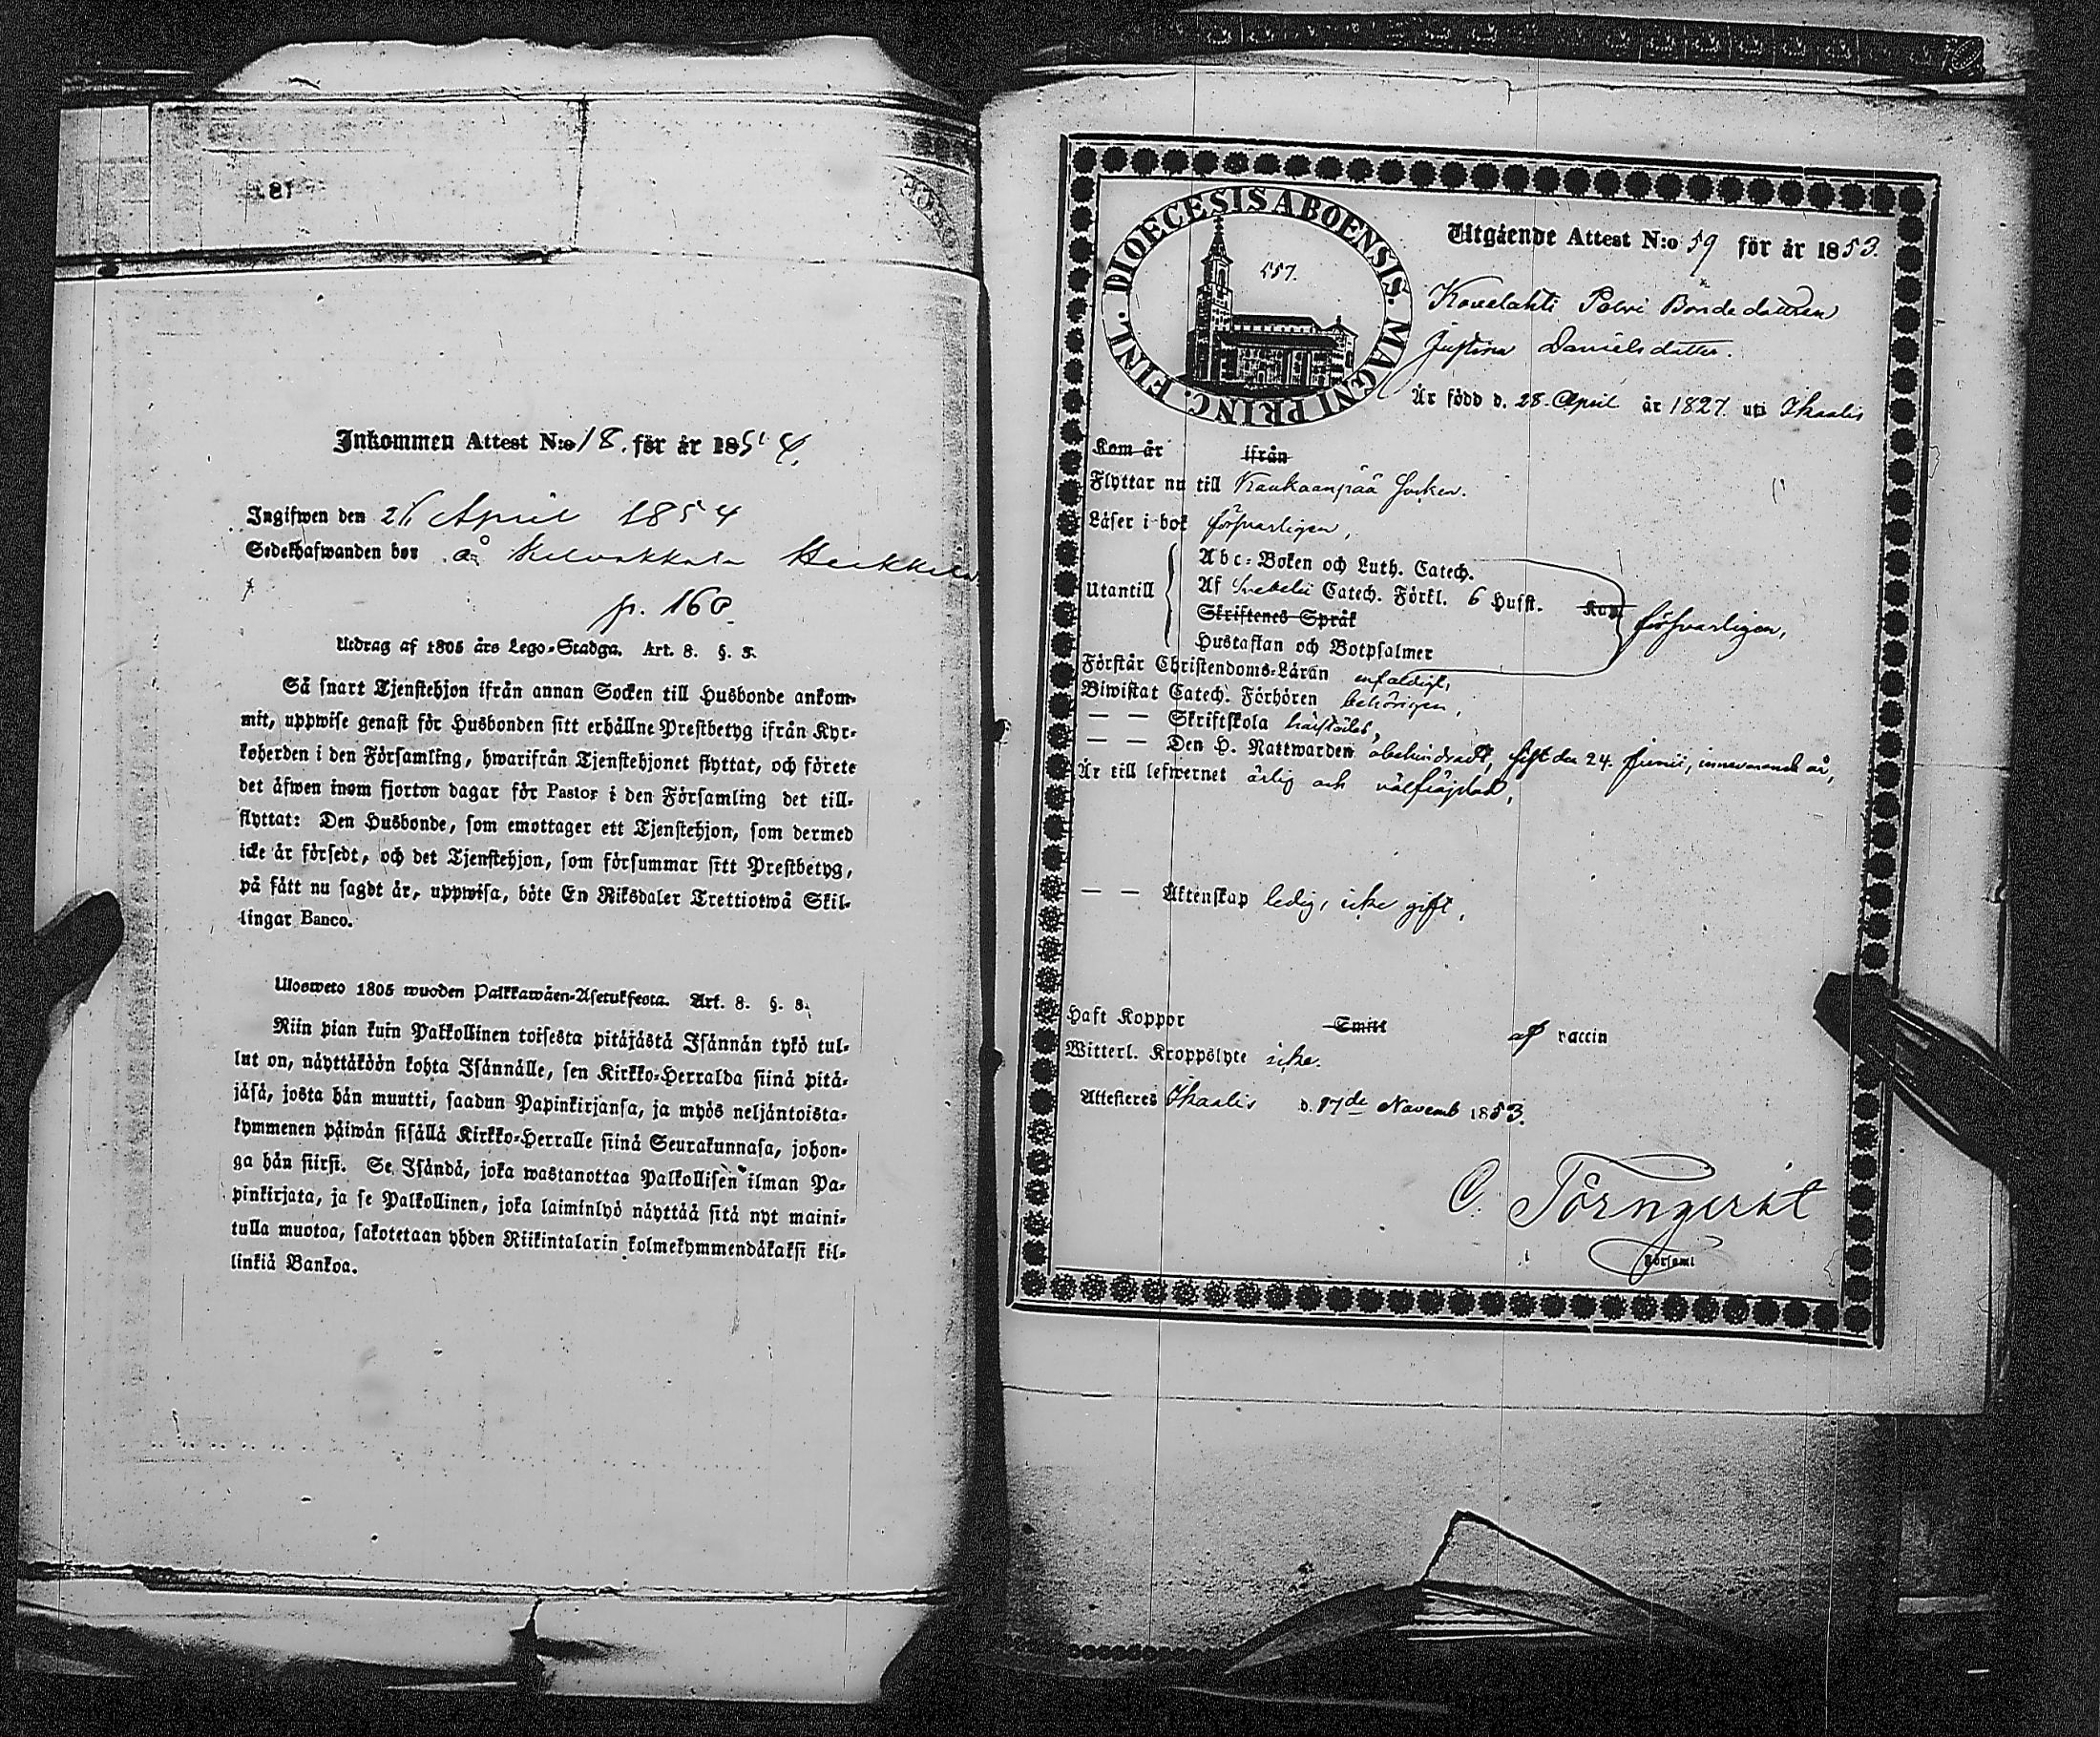 Inkommen Attest N:o 18. för år 1854.
Ingifwen den 21 April 1854
Sedelhafwanden bor å
p. 160
Utdrag af 1805 års Lego-Stadga. Art. 8. §. 3.
Så snart Tjenstehjon ifrån annan Socken till Husbonde ankom-
mit, uppwise genast för Husbonden sitt erhållne Prestbetyg ifrån Kyr-
koherden i den Församling, hwarifrån Tjenstehjonet flyttat, och förete
det äfwen inom fjorton dagar för Pastor i den Församling det till-
flyttat: Den Husbonde, som emottager ett Tjenstehjon, som dermed
icke är försedt, och det Tjenstehjon, som försummar sitt Prestbetyg,
på sått nu sagdt är, uppwisa, böte En Riksdaler Trettiotwå Skil-
lingar Banco.
Ulosweto 1805 wuoden Palkkawäen-Asetuksesta. Art. 8. §. 3.
Niin pian kuin Palkollinen toisesta pitäjästä Isännän tykö tul-
lut on, näyttäköön kohta Isännälle, sen Kirkko-Herralda siinä pitä-
jäsä, josta hän muutti, saadun Papinkirjansa, ja myös neljäntoista-
kymmenen päiwän sisällä Kirkko-Herralle siinä Seurakunnasa, johon-
ga hän siirsi. Se Isändä, joka wastanottaa Palkollisen ilman Pa-
pinkirjata, ja se Palkollinen, joka laiminlyö näyttää sitä nyt maini-
tulla muotoa, sakotetaan yhden Riikintalarin kolmekymmendäkaksi kil-
linkiä Bankoa.
DIOECESIS ABOENSIS. MAGNI PRINC. FINL.
557.
Utgående Attest N:o 59 för år 1853.
Kovelahti Bondedottren
Justina Danielsdotter.
Är född d. 28. April år 1827. uti Ikaalis
Kom år ifrån
Flyttar nu till Kankaanpää Socken.
Läser i bok försvarligen,
Abc-Boken och Luth. Catech.
Utantill Af Svebelii Catech. Förkl. 6 Hufst. Kan försvarligen,
Skriftenes Språk
Hustaflan och Botpsalmer
Förstår Christendoms-Läran enfaldigt,
Biwistat Catech. Förhören behörigen,
— — Skriftskola
— — Den H. Nattwarden obehindrad, sist den 24. Junii, innevarande år,
Är till lefwernet ärlig och välfräjdad,
— — Äktenskap ledig, icke gift,
Haft Koppor Smitt af vaccin
Witterl. Kroppslyte icke.
Attesteres Ikaalis d. 17de Novemb 1853.
C. Törnqvist
Församl